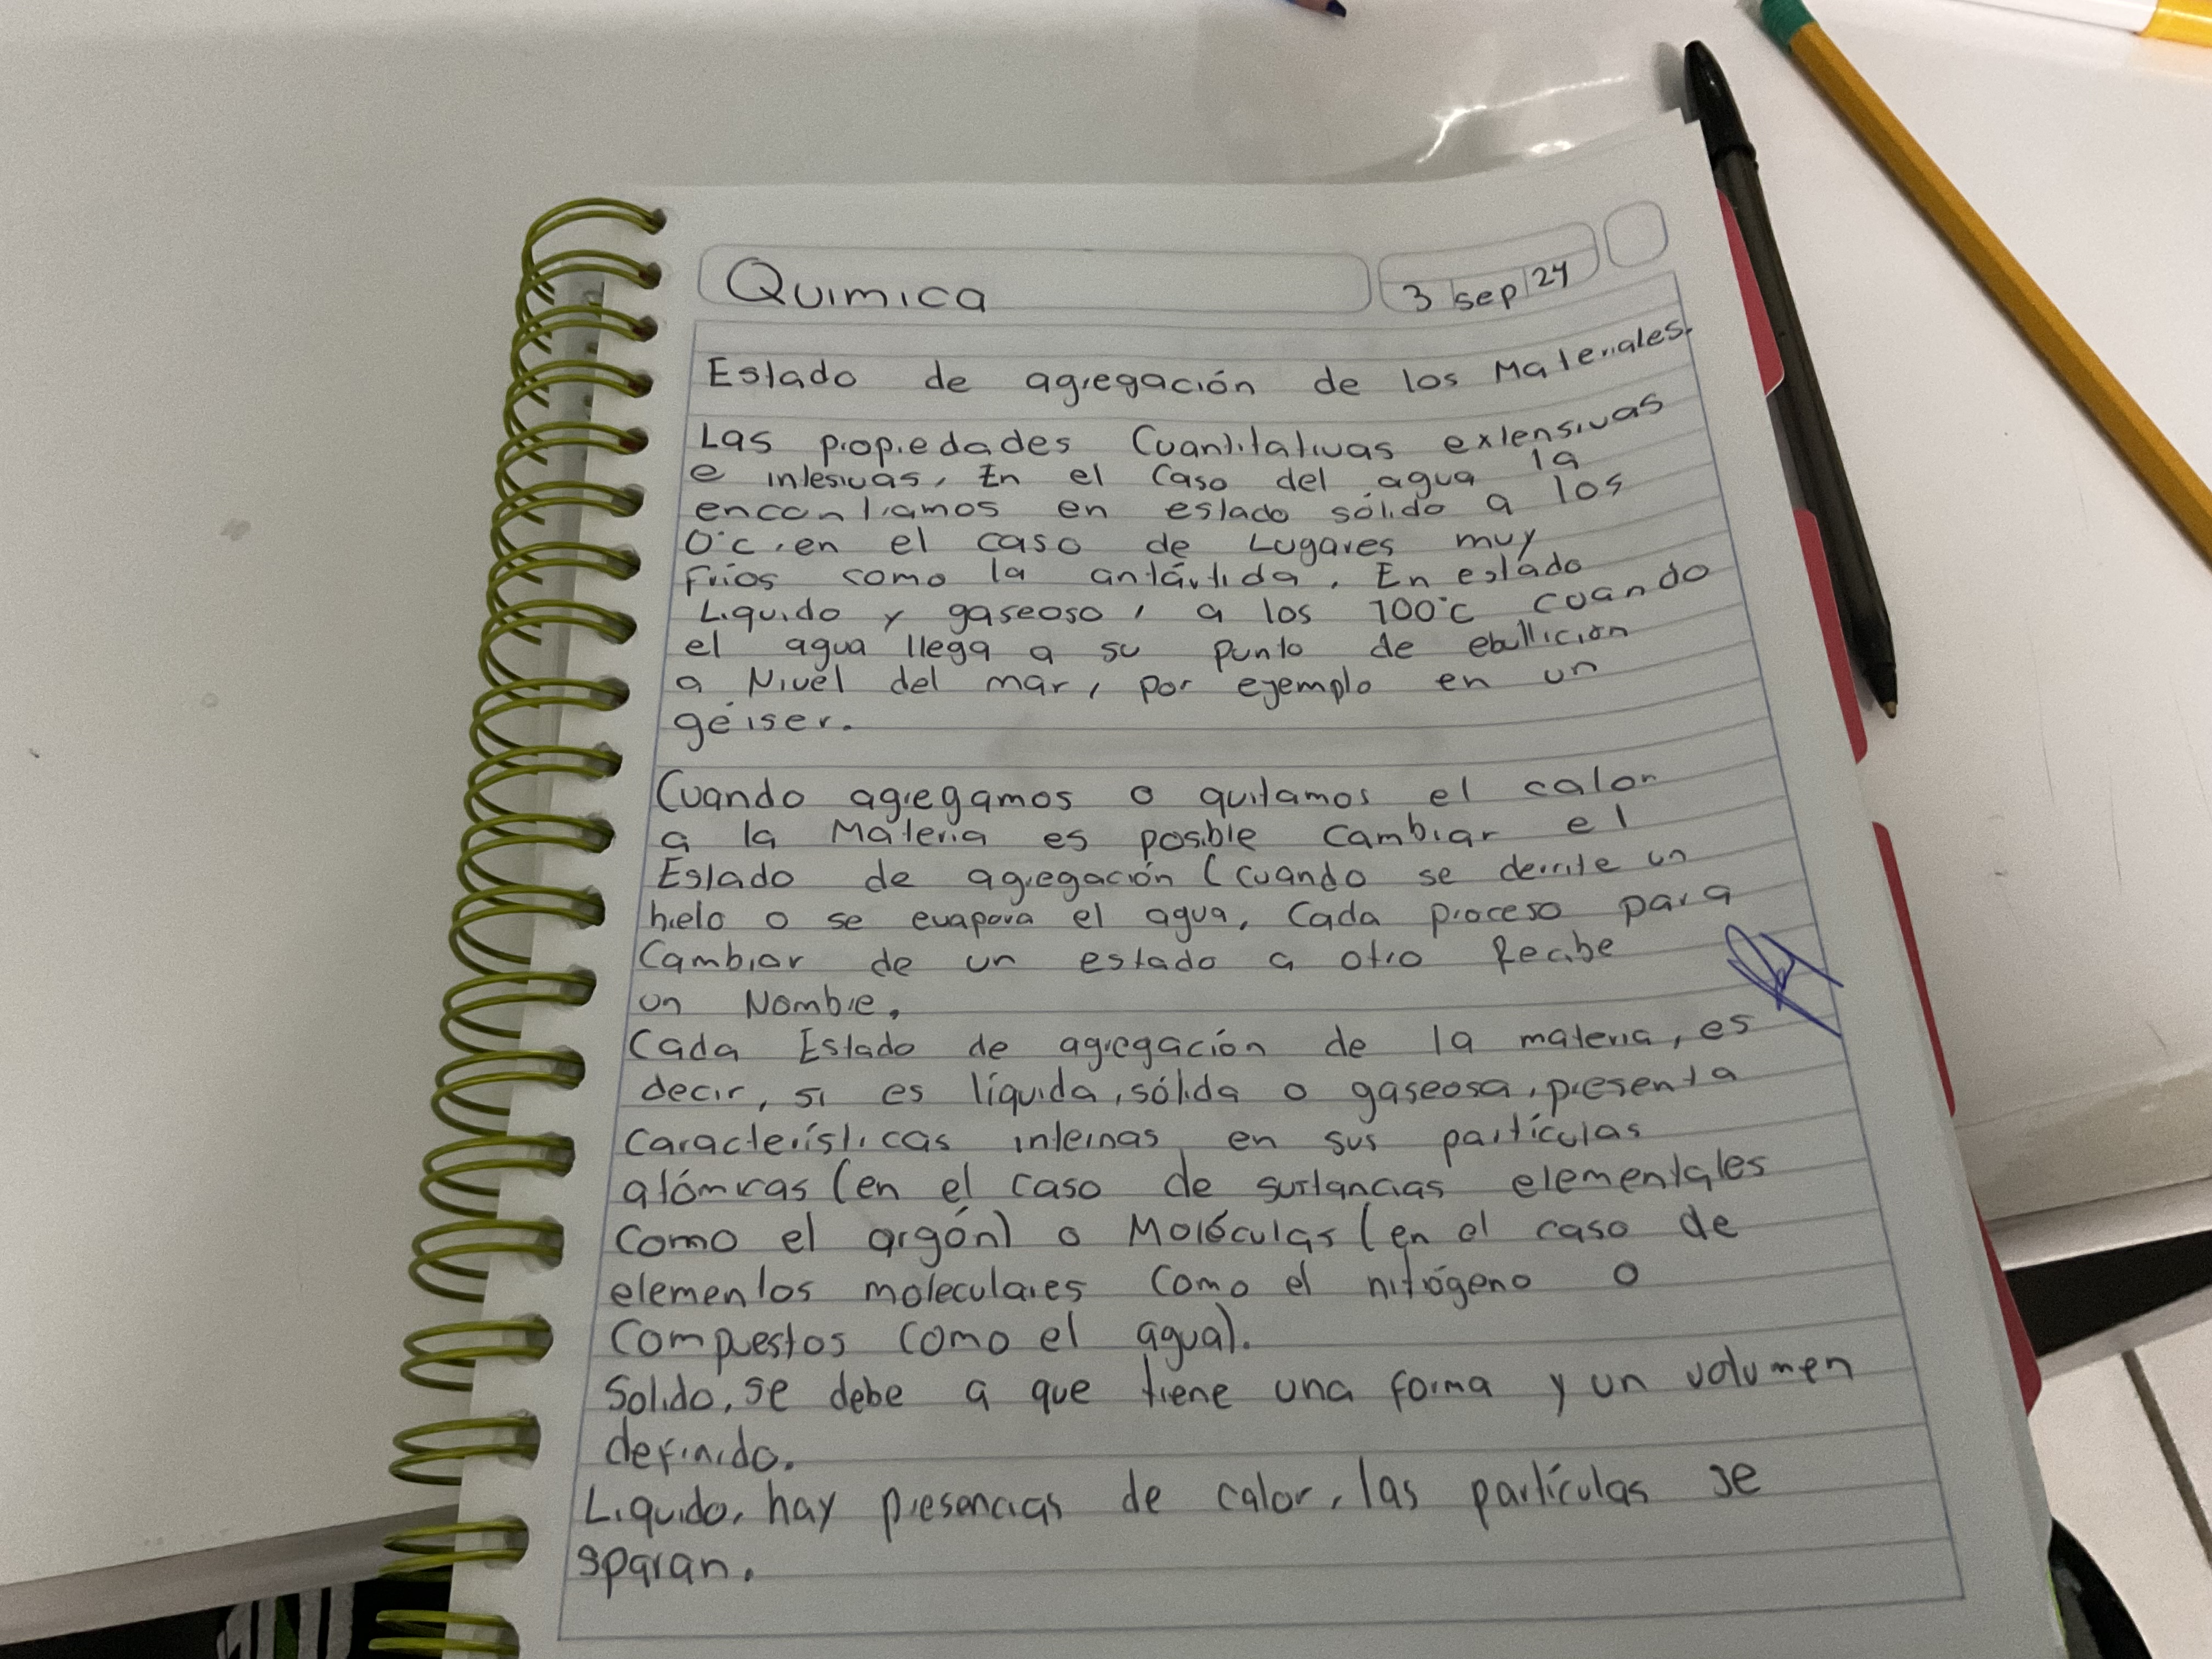 Quimica
3 sep 24
Estado de agregación de los Materiales.
Las propiedades Cuantitativas extensivas
e intesivas, En el Caso del agua la
encontramos en estado sólido a los
0°c, en el caso de Lugares muy
Fríos como la antártida. En estado
Liquido y gaseoso, a los 100°c cuando
el agua llega a su punto de ebullición
a Nivel del mar, por ejemplo en un
géiser.
Cuando agregamos o quitamos el calor
a la Materia es posible cambiar el
Estado de agregación (cuando se derrite un
hielo o se evapora el agua, Cada proceso para
Cambiar de un estado a otro Recibe
un Nombre.
Cada Estado de agregación de la materia, es
decir, si es líquida, sólida o gaseosa, presenta
características internas en sus partículas
atómicas (en el caso de sustancias elementales
Como el argón) o Moléculas (en el caso de
elementos moleculares Como el nitrógeno o
Compuestos como el agua).
Solido, se debe a que tiene una forma y un volumen
definido.
Liquido, hay presencias de calor, las partículas se
sparan.